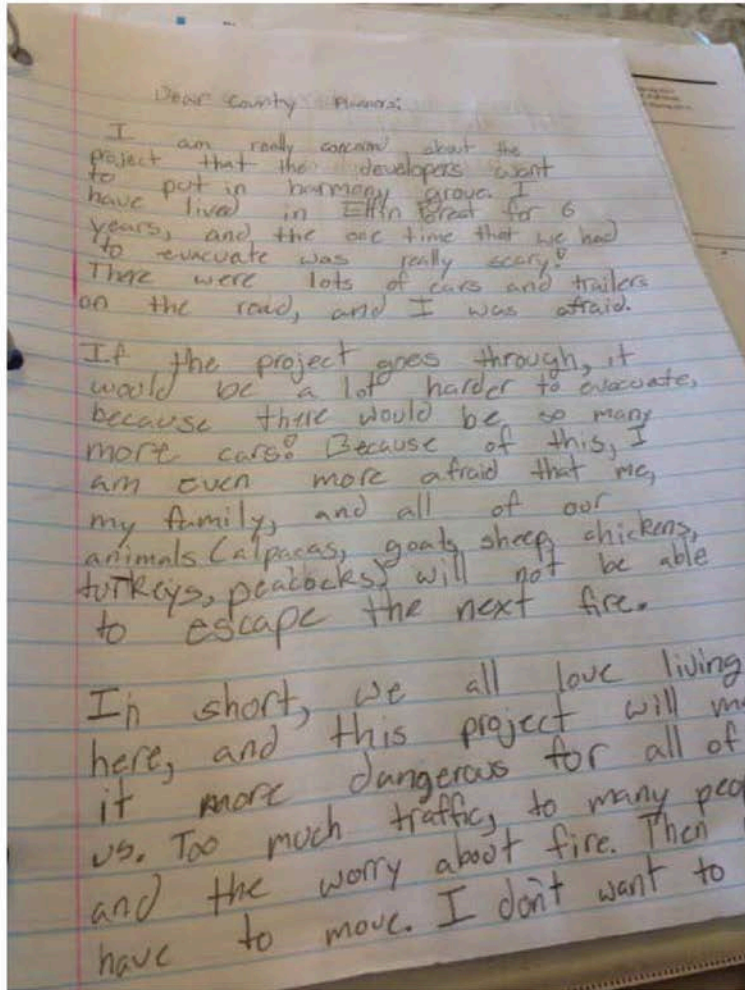 Dear County Planners:
I am really concernd about the
project that the developers want
to put in harmony grove. I
have lived in Elfin Forest for 6
years, and the one time that we had
to evacuate was really scary!
There were lots of cars and trailers
on the road, and I was afraid.
If the project goes through, it
would be a lot harder to evacuate,
because there would be so many
more cars! Because of this, I
am even more afraid that me,
my family, and all of our
animals (alpacas, goats, sheep, chickens,
turkeys, peacocks) will not be able
to escape the next fire.
In short, we all love living
here, and this project will
it more dangerous for all of
us. Too much traffic, to many
and the worry about fire. Then
have to move. I don't want to